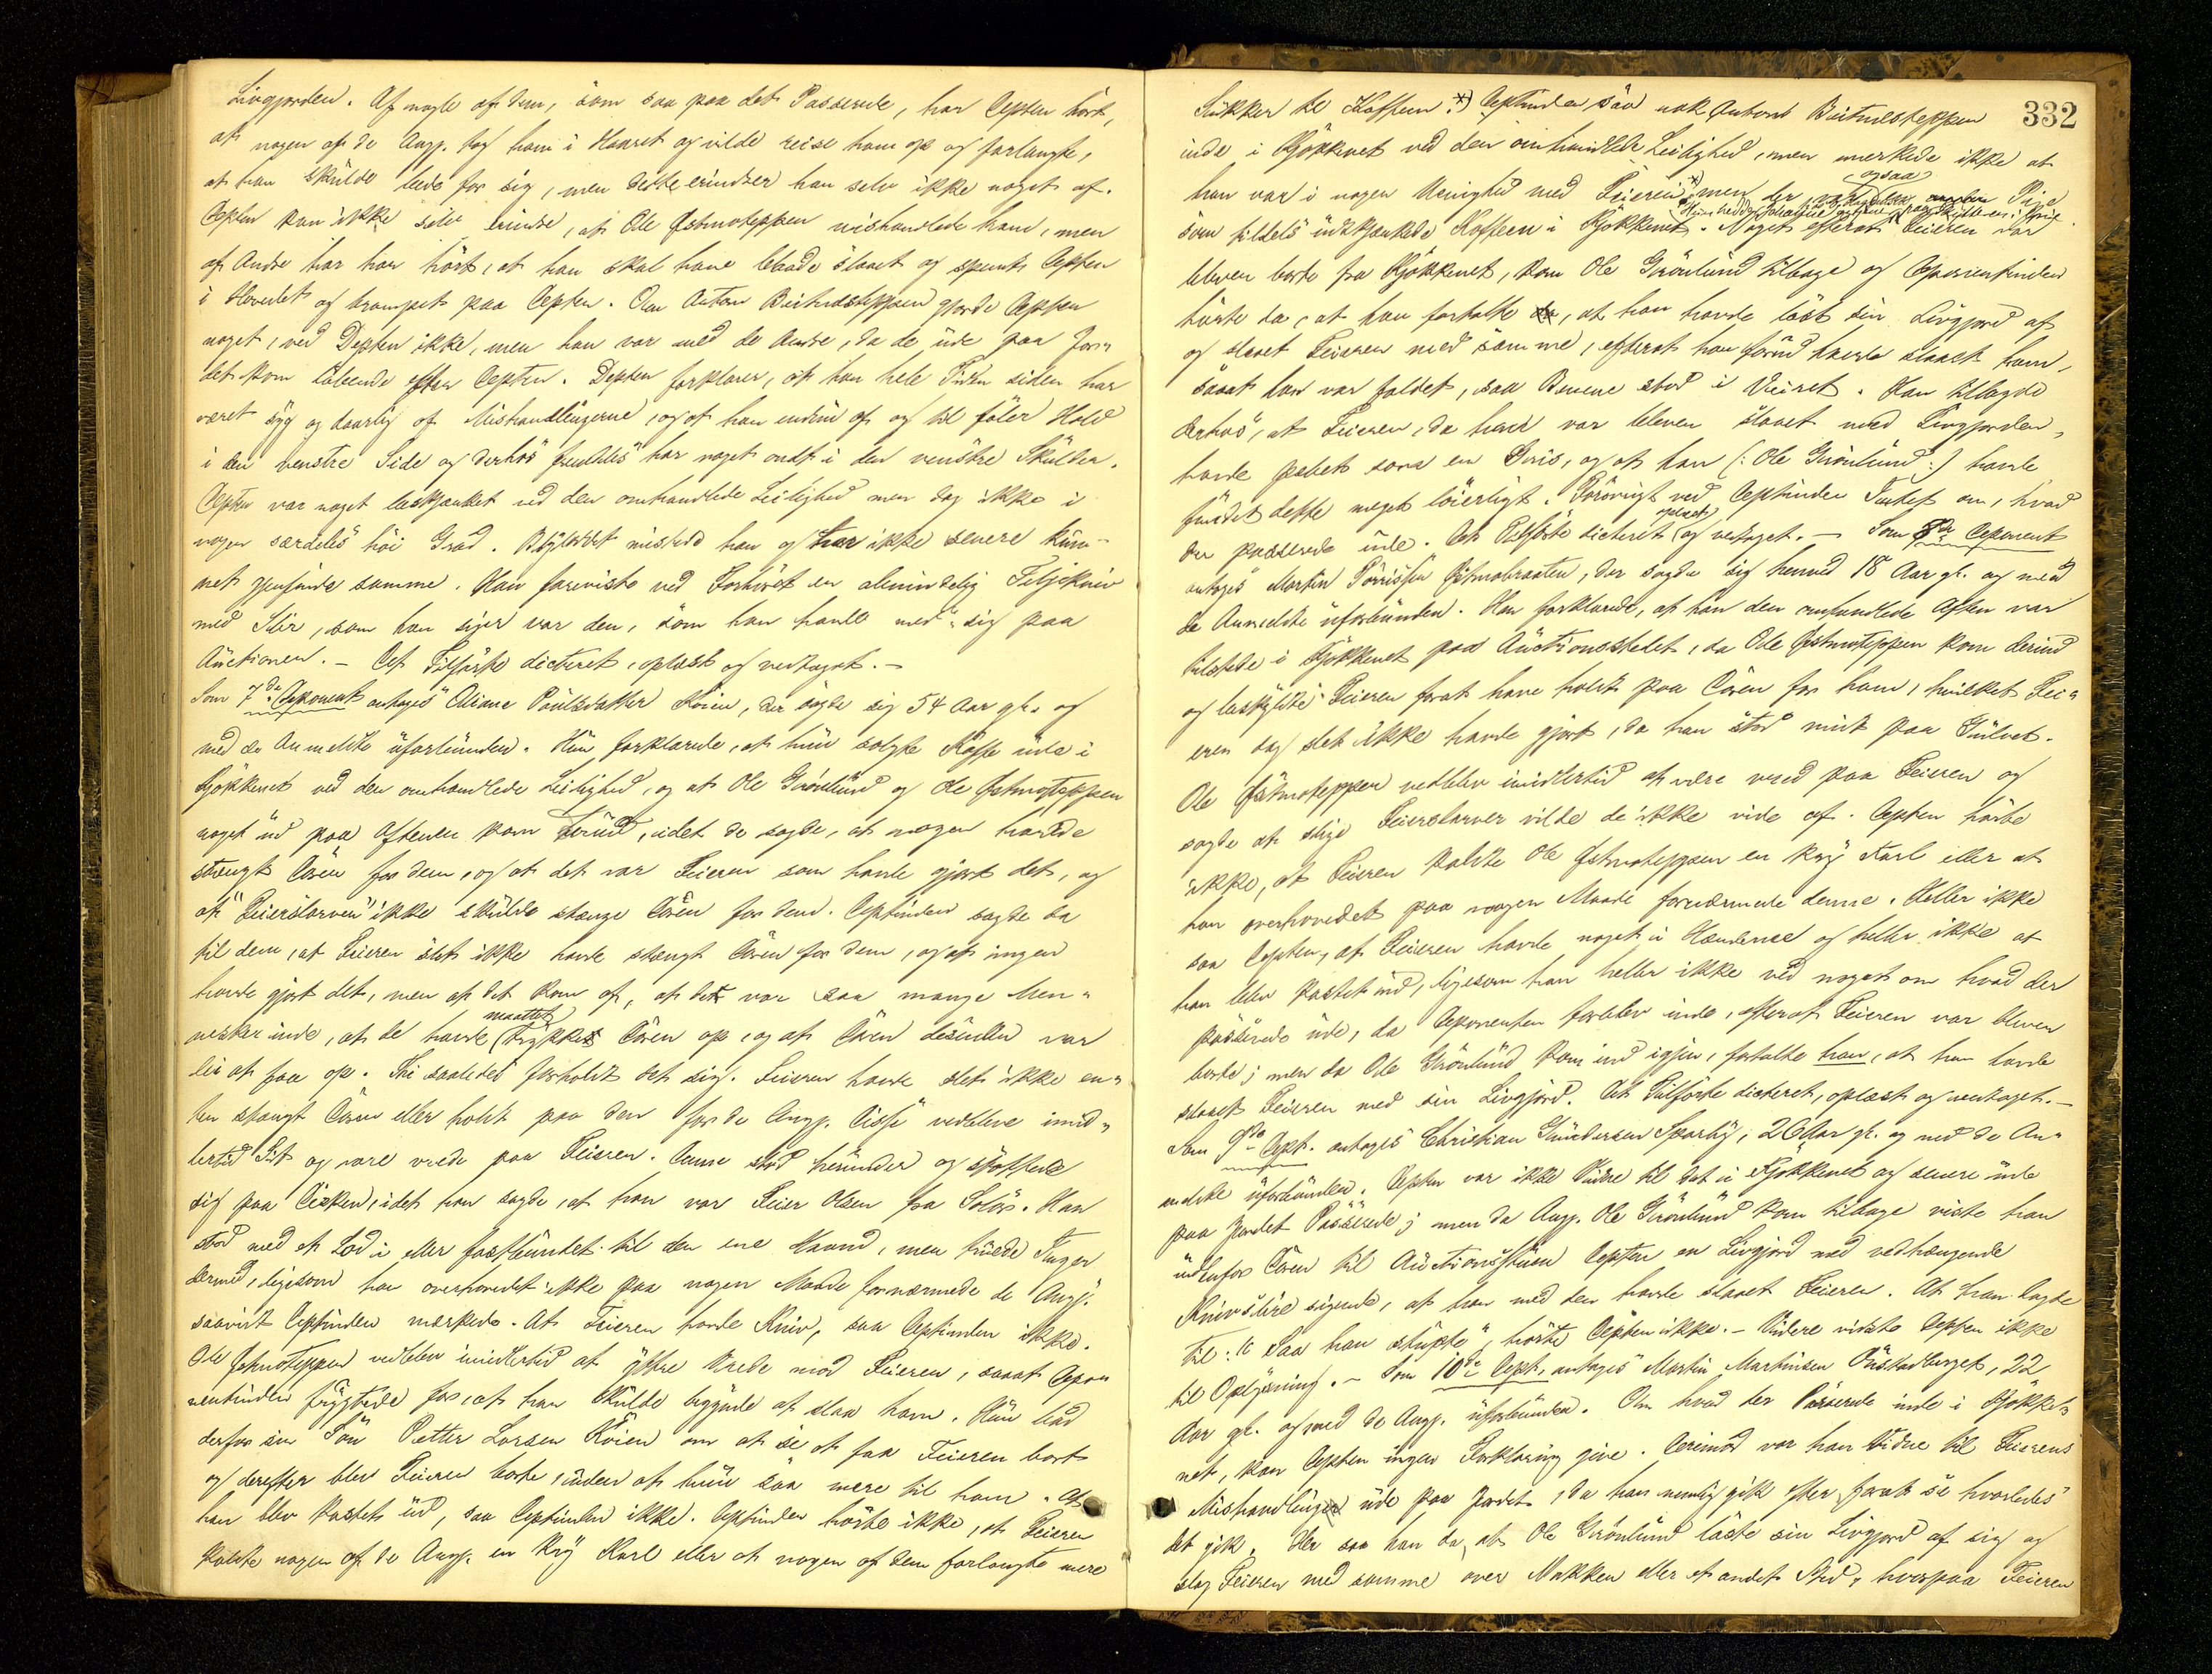 Livgjorden. Af nogle af dem, som saa paa det Passerede, har Depten hørt,
at nogen af de Angj. tog ham i Haaret og vilde reise ham op og forlangte,
at han skulde bede for sig, men dette erindrer han selv ikke noget af.
Depten kan ikke selv erindre, at Ole Østmoteppen mishandlede ham, men
af Andre har han hørt, at han skal have baade slaaet og spændt Depten
i Hovedet og trampet paa Depten. Om Anton Beitnesteppen gjorde Depten
noget, ved Depten ikke, men han var med de Andre, da de ude paa Jor-
det kom løbende efter Depten. Depten forklarer, at han hele Tiden siden har
været syg og daarlig af Mishandlingerne, og at han endnu af og til føler Hold
i den venstre Side og derhos fremdeles har noget ondt i den venstre Skulder.
Depten var noget beskjænket ved den omhandlede Leilighed men dog ikke i
nogen særdeles høi Grad. Blyloddet mistede han og har ikke senere kun-
net gjenfinde samme. Han foreviste ved Forhøret en almindelig Teljekniv
med Slir, som han siger var den, som han havde med sig paa
Auctionen. – Det Tilførte dicteret, oplæst og vedtaget. –
Som 7de Deponent antoges Eliane Paulsdatter Koien, der sagde sig 54 Aar gl. og
med de Anmeldte uforbunden. Hun forklarede, at hun solgte Kaffe ude i
Kjøkkenet ved den omhandlede Leilighed, og at Ole Grønlund og Ole Østmoteppen
noget ud paa Aftenen kom derind, idet de sagde, at nogen havde
stængt Døren for dem, og at det var Feieren som havde gjort det, og
at "Feierlarven" ikke skulde stænge Døren for dem. Deptinden sagde da
til dem, at Feieren slet ikke havde stængt Døren for dem, og at ingen
havde gjort det, men at det kom af, at det var saa mange Men-
maattet
nesker inde, at de havde trykket Døren op, og at Døren desuden var
lei at faa op. Thi saaledes forholdt det sig. Feieren havde slet ikke en-
ten stængt Døren eller holdt paa den for de Angj. Disse vedbleve imid-
lertid Sit og vare vrede paa Feieren. Denne stod herunder og støttede
sig paa Disken, idet han sagde, at han var Feier Olsen fra Solør. Han
stod med et Lod i eller fastbundet til den ene Haand, men truede Ingen
dermed, ligesom han overhovedet ikke paa nogen Maade fornærmede de Angj.
saavidt Deptinden mærkede. At Feieren havde Kniv, saa Deptinden ikke.
Ole Østmoteppen vedblev imidlertid at yttre Vrede mod Feieren, saaat Depo-
nentinden frygtede for, at han skulde begynde at slaa ham. Hun bad
derfor sin Søn Petter Larsen Koien om at se at faa Feieren bort
og derefter blev Feieren borte, uden at hun saa mere til ham. At
han blev kastet ud, saa Deptinden ikke. Deptinden hørte ikke, at Feieren
kaldte nogen af de Angj. en kry Karl eller at nogen af dem forlangte mere
332
Sukker til Kaffeen. x) Deptinden saa nok Antons Beitnesteppen
inde i Kjøkkenet ved den omhandlede Leilighed, men mærkede ikke at
ogsaa
han var i nogen Uenighed med Feieren, men der var Pige
som tildels udskjænkede Kaffeen i Kjøkkenet. Noget efterat Feieren var
bleven borte fra Kjøkkenet, kom Ole Grønlund tilbage og Deponentinden
hørte da, at han fortalte, at han havde løst sin Livgjord af
og slaaet Feieren med samme, efterat han forud havde slaaet ham,
saaat han var faldet, saa Benene stod i Veiret. Han tillagde
derhos, at Feieren, da han var bleven slaaet med Livgjorden,
havde peket som en Gris, og at han (: Ole Grønlund :) havde
fundet dette meget løierligt. Forøvrigt ved Deptinden Intet om, hvad
oplæst
der passerede ude. Det Tilførte dicteret og vedtaget. – Som 8de Deponent
antoges Martin Torrissen Østmobraaten, der sagde sig henved 18 Aar gl. og med
de Anmeldte uforbunden. Han forklarede, at han den omhandlede Aften var
tilstede i Kjøkkenet paa Auctionsstedet, da Ole Østmoteppen kom derind
og beskyldte Feieren forat have holdt paa Døren for ham, hvilket Fei-
eren dog slet ikke havde gjort, da han stod midt paa Gulvet.
Ole Østmoteppen vedblev imidlertid at være vred paa Feieren og
sagde at slige Feierlarver vilde de ikke vide af. Depten hørte
ikke, at Feieren kaldte Ole Østmoteppen en kry Karl eller at
han overhovedet paa nogen Maade fornærmede denne. Heller ikke
saa Depten, at Feieren havde noget i Hænderne og heller ikke at
han blev kastet ud, ligesom han heller ikke ved noget om hvad der
passerede ude, da Deponenten forblev inde, efterat Feieren var bleven
borte; men da Ole Grønlund kom ind igjen, fortalte han, at han havde
slaaet Feieren med sin Livgjord. Det Tilførte dicteret, oplæst og vedtaget. –
Som 9de Dept. antoges Christian Gundersen Sparby, 26 Aar gl. og med de An-
meldte uforbunden. Depten var ikke Vidne til det i Kjøkkenet og senere ude
paa Jordet Passerede; men da Angj. Ole Grønlund kom tilbage viste han
udenfor Døren til Auctionsstuen Depten en Livgjord med vedhængende
Knivslire sigende, at han med den havde slaaet Feieren. At han lagde
til: "Saa han stupte", hørte Depten ikke. – Videre vidste Depten ikke
til Oplysning. – Som 10de Dept. antoges Martin Martinsen Pustadberget, 22
Aar gl. og med de Angj. uforbunden. Om hvad der Passerede inde i Kjøkke-
net, kan Depten ingen Forklaring give. Derimod var han Vidne til Feierens
Mishandlingen ude paa Jordet, da han nemlig gik efter forat se hvorledes
det gik. Her saa han da, at Ole Grønlund løste sin Livgjord af sig og
slog Feieren med samme over Nakken eller et andet Sted, hvorpaa Feieren